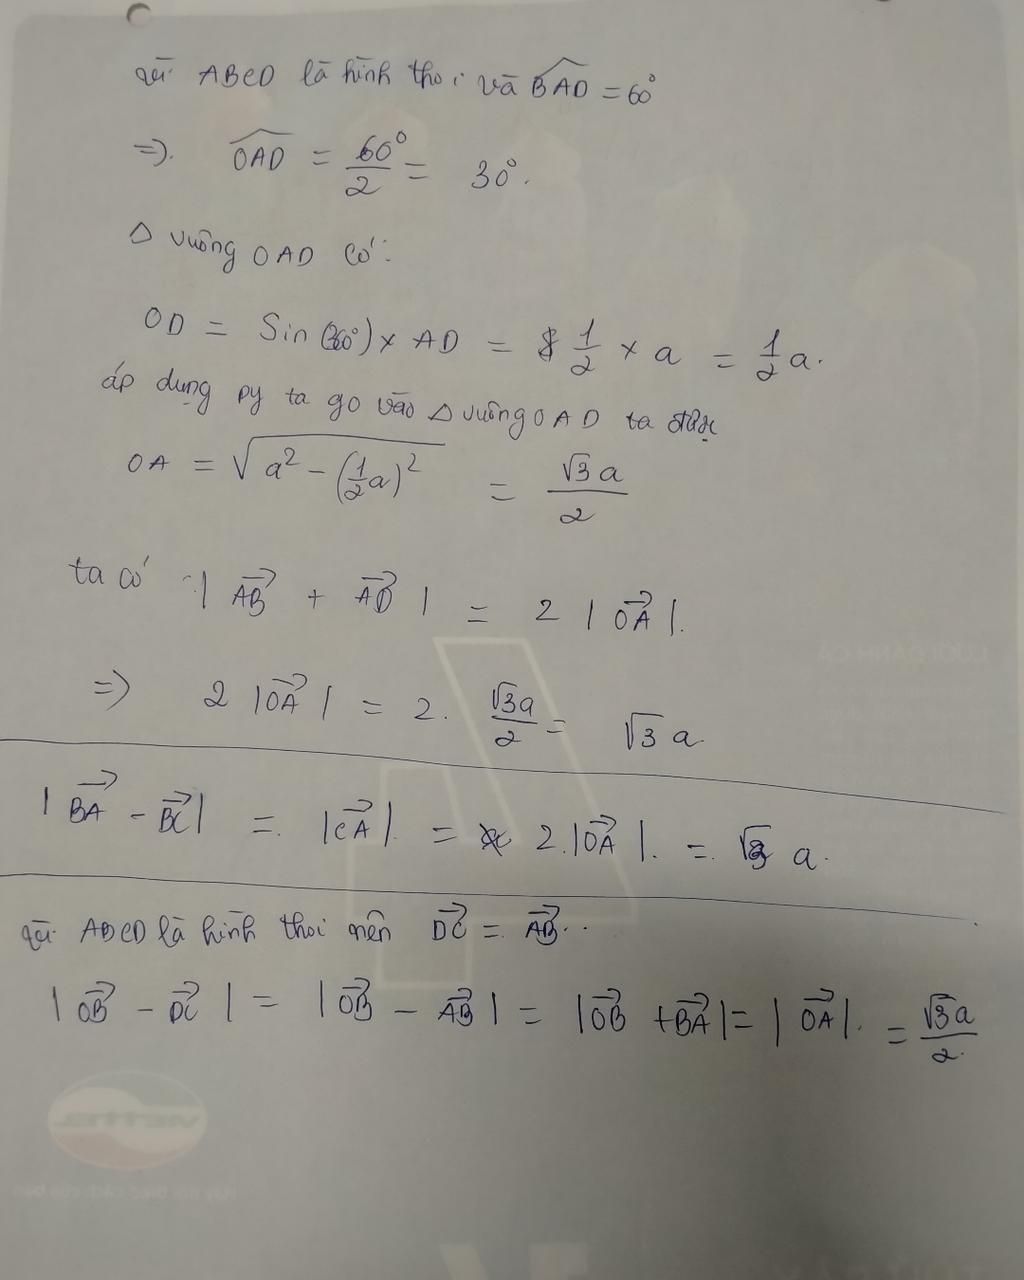 vì ABCD là hình thoi và \widehat{BAD} = 60°
=>. \widehat{OAD} = \frac{60°}{2} = 30°.
Δ vuông OAD có:
OD = Sin(30°) x AD = \frac{1}{2} x a = \frac{1}{2}a.
áp dụng py ta go vào Δ vuông OAD ta được
OA = \sqrt{a^2 - (\frac{1}{2}a)^2} = \frac{\sqrt{3}a}{2}
ta có : |\overrightarrow{AB} + \overrightarrow{AD}| = 2|\overrightarrow{OA}|.
=> 2|\overrightarrow{OA}| = 2. \frac{\sqrt{3}a}{2} = \sqrt{3}a
|\overrightarrow{BA} - \overrightarrow{BC}| =. |\overrightarrow{CA}|. = 2.|\overrightarrow{OA}|. =. \sqrt{3} a.
vì ABCD là hình thoi nên \overrightarrow{DC} = \overrightarrow{AB}..
|\overrightarrow{OB} - \overrightarrow{DC}| = |\overrightarrow{OB} - \overrightarrow{AB}| = |\overrightarrow{OB} + \overrightarrow{BA}| = |\overrightarrow{OA}|. = \frac{\sqrt{3}a}{2.}
viettel